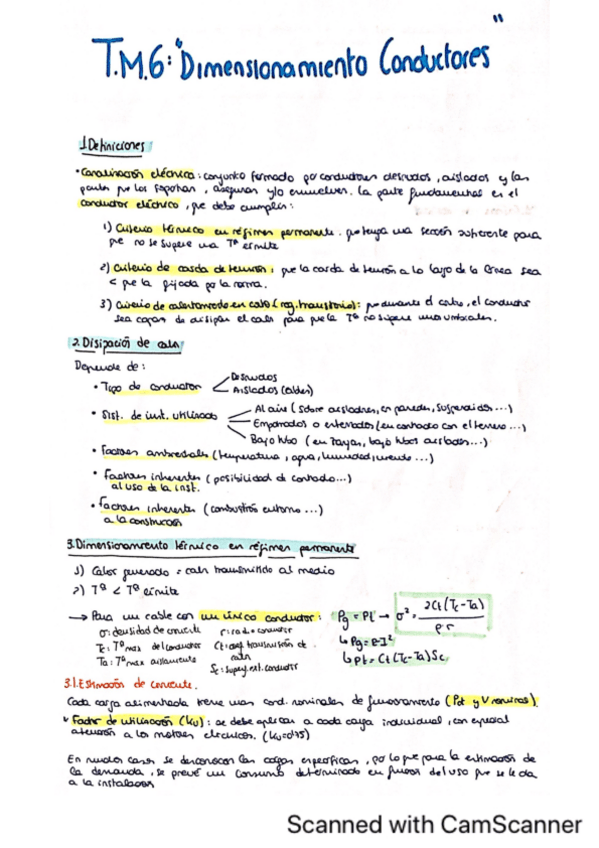 T.M.6: "Dimensionamiento Conductores"
1.Definiciones
• Canalización eléctrica: conjunto formado por conductores desnudos, aislados y las
partes que los soportan, aseguran y/o envuelven. La parte fundamental es el
conductor eléctrico, que debe cumplir:
1) Criterio térmico en régimen permanente. que tenga una sección suficiente para
que no se supere una Tª límite
2) Criterio de caída de tensión: que la caída de tensión a lo largo de la línea sea
< que la fijada por la norma.
3) Criterio de calentamiento en corto (reg. transitorio): que durante el corto, el conductor
sea capaz de disipar el calor para que la Tª no supere unos umbrales.
2. Disipación de calor
Depende de:
• Tipo de conductor
Desnudos
Aislados (cables)
• Sist. de inst. utilizado
Al aire (sobre aisladores, en paredes, suspendidos ...)
Empotrados o enterrados (en contacto con el terreno ...)
Bajo tubo (en zanjas, bajo tubos aislados...)
• Factores ambientales (temperatura, agua, humedad, viento ...)
• Factores inherentes (posibilidad de contacto...)
al uso de la inst.
• Factores inherentes (combustión entorno ...)
a la construcción
3.Dimensionamiento térmico en régimen permanente
1) Calor generado = calor transmitido al medio
2) Tª < Tª límite
→ Para un cable con un único conductor: Pg = Pt → σ² = 2Ct(Tc-Ta) / ρ·r
σ: densidad de corriente r: radio conductor
Tc: Tª max del conductor Ct: coef transmisión de calor
Ta: Tª max aislamiento Sc: superf. ext. conductor
↳ Pg = R·I²
↳ Pt = Ct(Tc-Ta)Sc
3.1.Estimación de corriente.
Cada carga alimentada tiene unas cond. nominales de funcionamiento (Pot y V nominales)
Factor de utilización (Ku): se debe aplicar a cada carga individual, con especial
atención a los motores eléctricos. (Ku=0'75)
En muchos casos se desconocen las cargas específicas, por lo que para la estimación de
la demanda, se prevé un consumo determinado en función del uso que se le da
a la instalación
Scanned with CamScanner